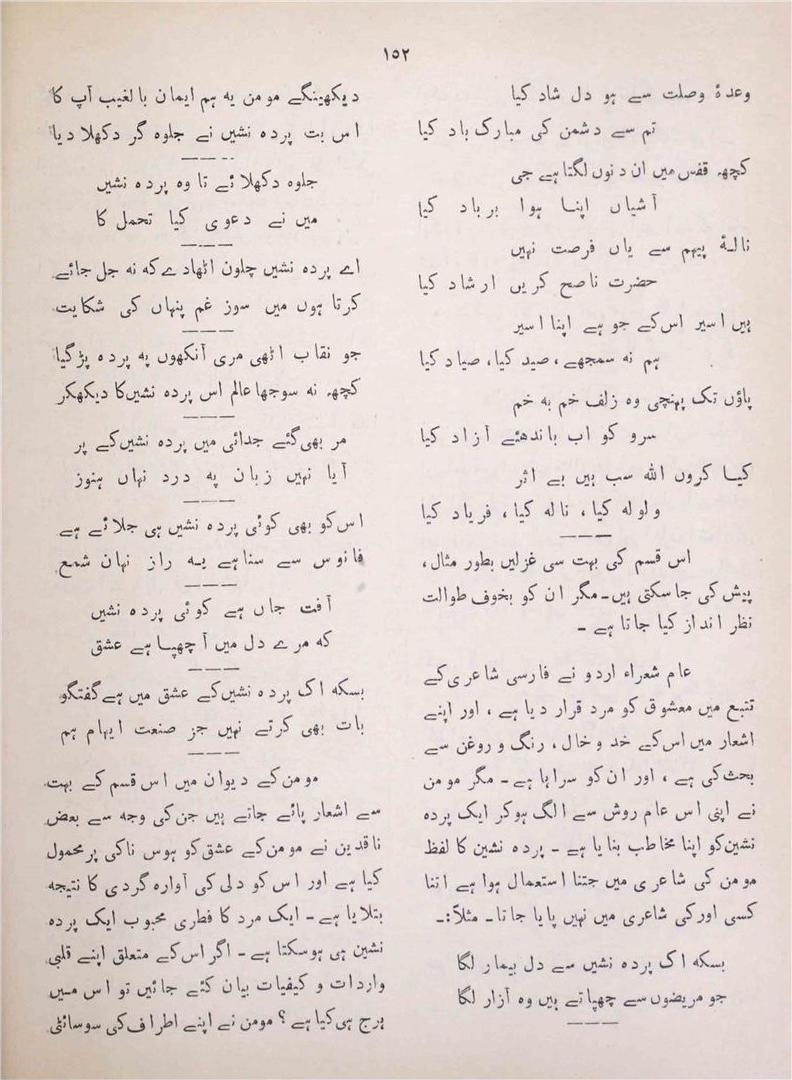 ۱۵۲
وعدۂ وصلت سے ہو دل شاد کیا
تم سے دشمن کی مبارک باد کیا
کچھہ قفس میں ان دنوں لگتا ہے جی
آشیاں اپنا ہوا برباد کیا
نالۂ پیہم سے یاں فرصت نہیں
حضرت ناصح کریں ارشاد کیا
ہیں اسیر اس کے جو ہے اپنا اسیر
ہم نہ سمجھے، صید کیا، صیاد کیا
پاؤں تک پہنچی وہ زلف خم بہ خم
سرو کو اب باندھئے آزاد کیا
کیا کروں اللہ سب ہیں بے اثر
ولولہ کیا، نالہ کیا، فریاد کیا
اس قسم کی بہت سی غزلیں بطور مثال،
پیش کی جاسکتی ہیں۔ مگر ان کو بخوف طوالت
نظر انداز کیا جاتا ہے ۔
عام شعراء اردو نے فارسی شاعری کے
تتبع میں معشوق کو مرد قرار دیا ہے، اور اپنے
اشعار میں اس کے خد و خال، رنگ و روغن سے
بحث کی ہے، اور ان کو سراہا ہے۔ مگر مومن
نے اپنی اس عام روش سے الگ ہوکر ایک پردہ
نشیں کو اپنا مخاطب بنایا ہے ۔ پردہ نشین کا لفظ
مومن کی شاعری میں جتنا استعمال ہوا ہے اتنا
کسی اور کی شاعری میں نہیں پایا جاتا۔ مثلاً:۔
بسکہ اک پردہ نشیں سے دل بیمار لگا
جو مریضوں سے چھپاتے ہیں وہ آزار لگا
دیکھینگے مومن یہ ہم ایمان بالغیب آپ کا
اس بت پردہ نشیں نے جلوہ گر دکھلا دیا
جلوہ دکھلائے تا وہ پردہ نشیں
میں نے دعوی کیا تحمل کا
اے پردہ نشیں چلون اٹھادے کہ نہ جل جائے
کرتا ہوں میں سوز غم پنہاں کی شکایت
جو نقاب اٹھی مری آنکھوں پہ پردہ پڑگیا
کچھہ نہ سوجھا عالم اس پردہ نشیں کا دیکھکر
مر بھی گئے جدائی میں پردہ نشیں کے پر
آیا نہیں زبان پہ درد نہاں ہنوز
اس کو بھی کوئی پردہ نشیں ہی جلائے ہے
فانوس سے سنا ہے یہ راز نہان شمع
آفت جاں ہے کوئی پردہ نشیں
کہ مرے دل میں آ چھپا ہے عشق
بسکہ اک پردہ نشیں کے عشق میں ہے گفتگو
بات بھی کرتے نہیں جز صنعت ایہام ہم
مومن کے دیوان میں اس قسم کے بہت
سے اشعار پائے جاتے ہیں جن کی وجہ سے بعض
ناقدین نے مومن کے عشق کو ہوس ناکی پر محمول
کیا ہے اور اس کو دلی کی آوارہ گردی کا نتیجہ
بتلایا ہے۔ ایک مرد کا فطری محبوب ایک پردہ
نشین ہی ہوسکتا ہے۔ اگر اس کے متعلق اپنے قلبی
واردات و کیفیات بیان کئے جائیں تو اس میں
ہرج ہی کیا ہے؟ مومن نے اپنے اطراف کی سوسائٹی